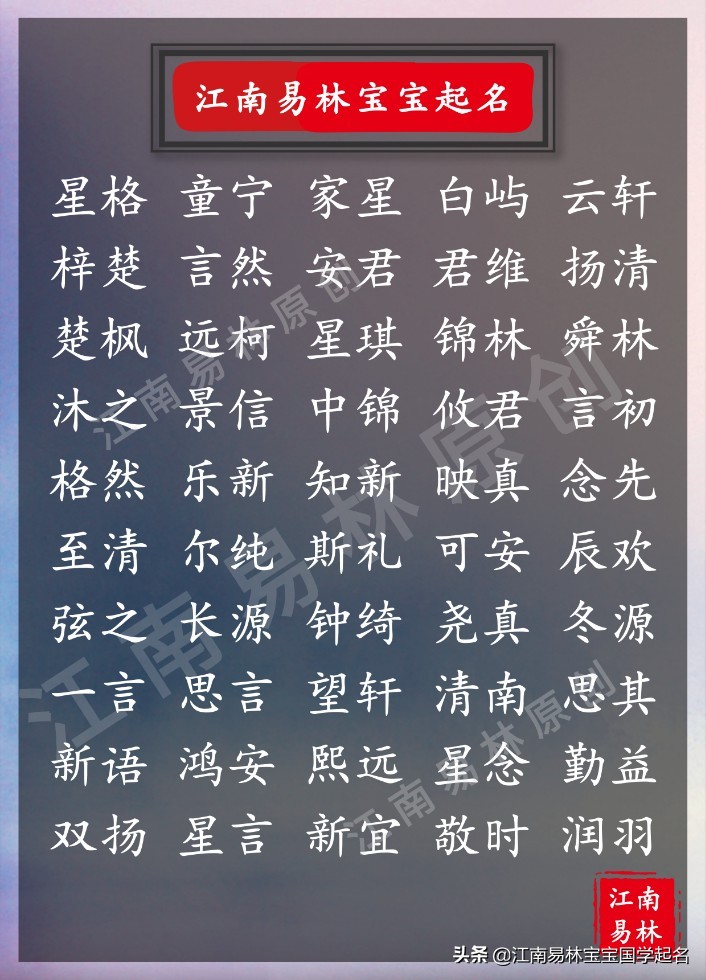 江南易林宝宝起名
星格 童宁 家星 白屿 云轩
梓楚 言然 安君 君维 扬清
楚枫 远柯 星琪 锦林 舜林
沐之 景信 中锦 攸君 言初
格然 乐新 知新 映真 念先
至清 尔纯 斯礼 可安 辰欢
弦之 长源 钟绮 尧真 冬源
一言 思言 望轩 清南 思其
新语 鸿安 熙远 星念 勤益
双扬 星言 新宜 敬时 润羽
江南易林原创
江南易林原创
江南易林原创
江南
易林
头条 @江南易林宝宝国学起名